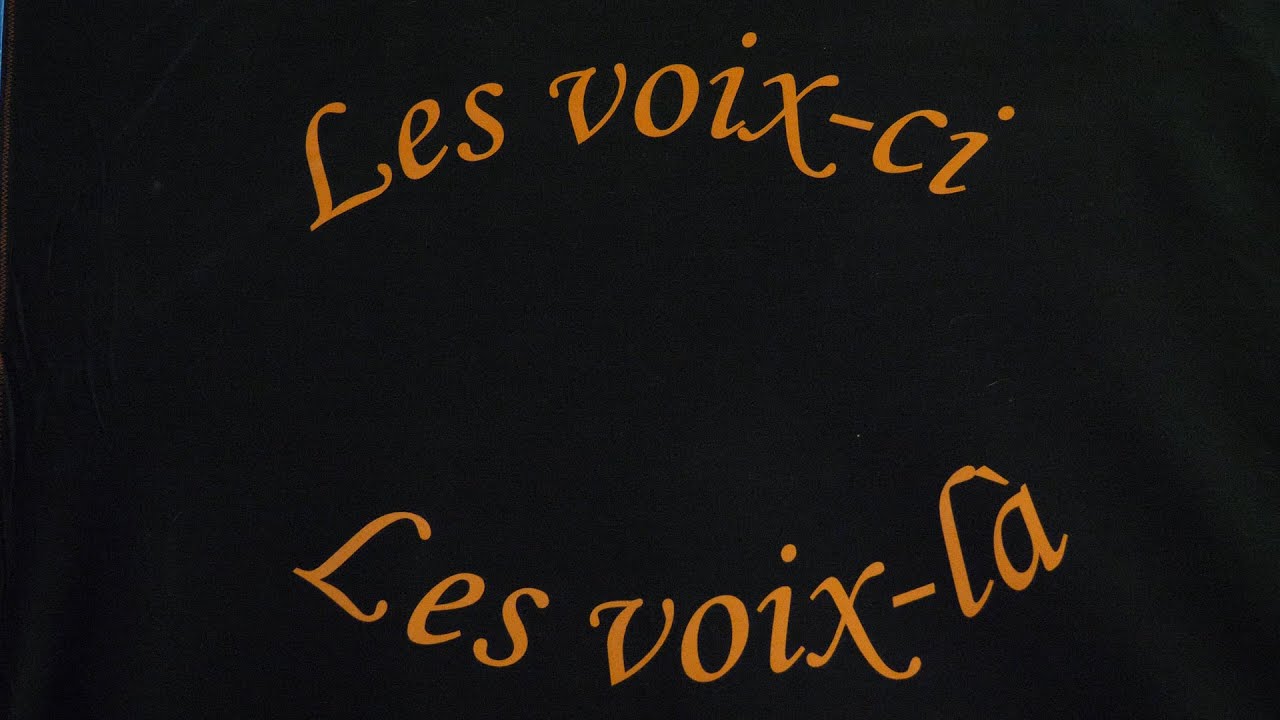 Les voix-ci
Les voix-là